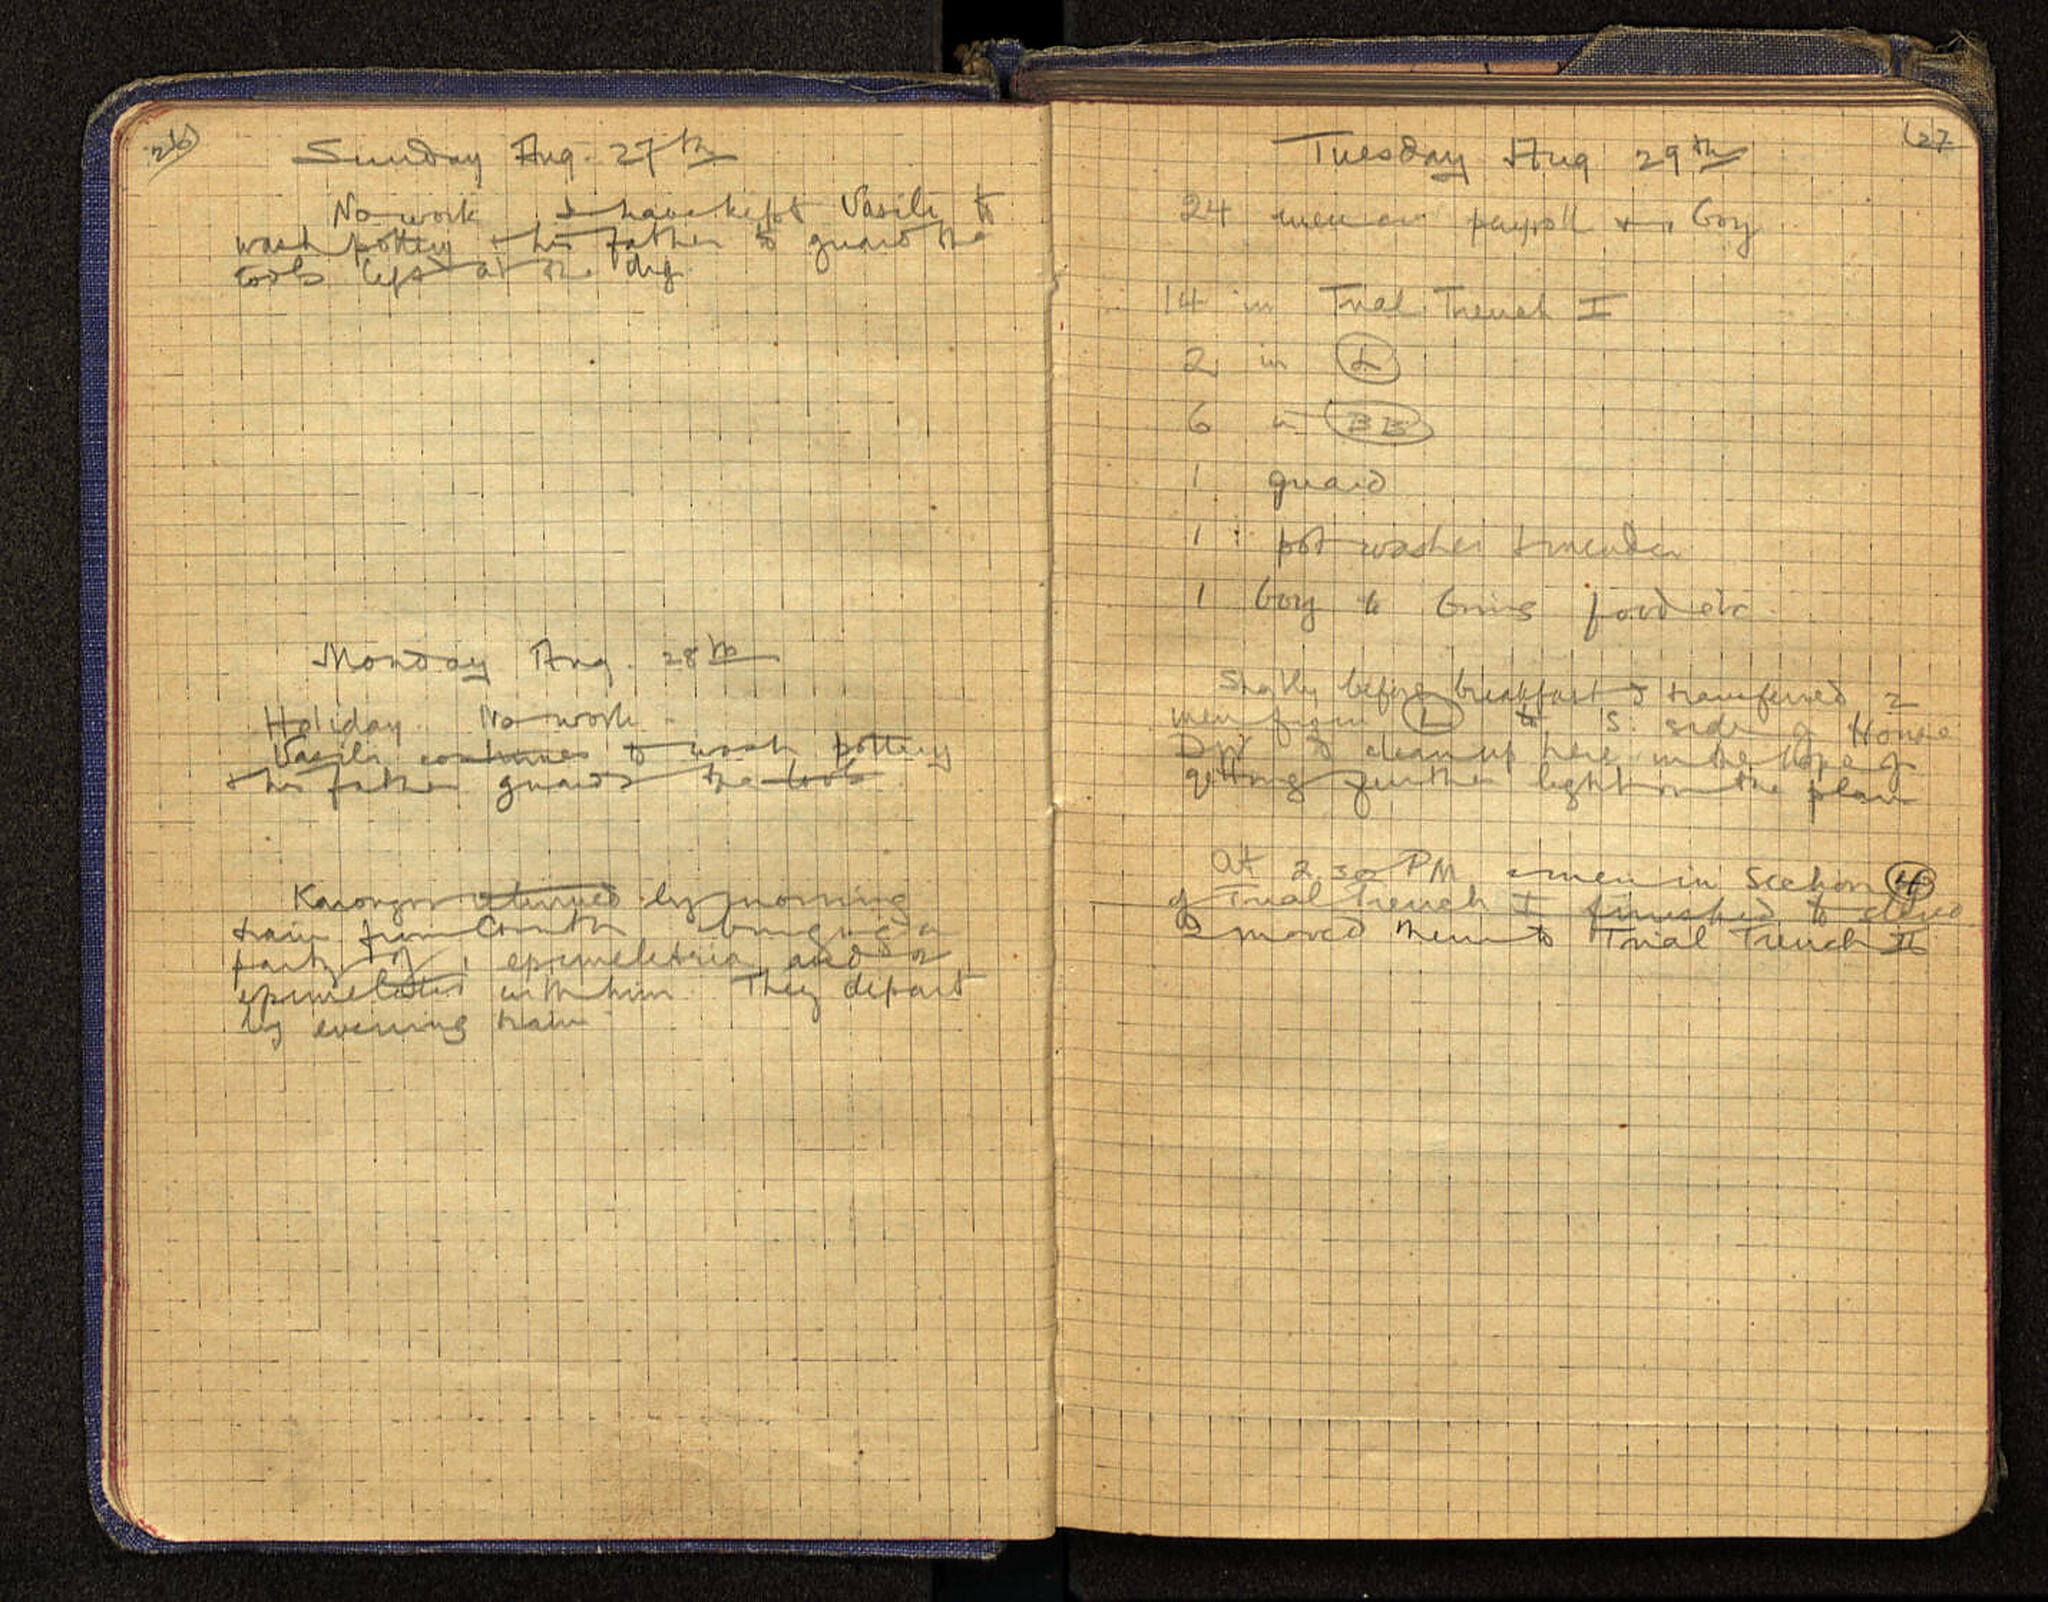 26
Sunday Aug. 27th
No work I have kept Vasili to
wash pottery & his father to guard the
tools left at the dig.
Monday Aug. 28th
Holiday. No work.
Vasili continues to wash pottery
& his father guards the tools
returned by morning
train from Corinth bringing a
party of 1 epimeletria and 2
epimeletes with him. They depart
by evening train.
27
Tuesday Aug 29th
24 men on payroll + 1 boy
14 in Trial Trench I
2 in L
6 in BB
1 guard
1 pot washer & mender
1 boy to bring food etc.
Shortly before breakfast I transferred 2
men from L to S. side of House
to clean up here in the hope of
getting further light on the plan
At 2.30 PM men in Section
of Trial Trench I finished to
moved them to Trial Trench II